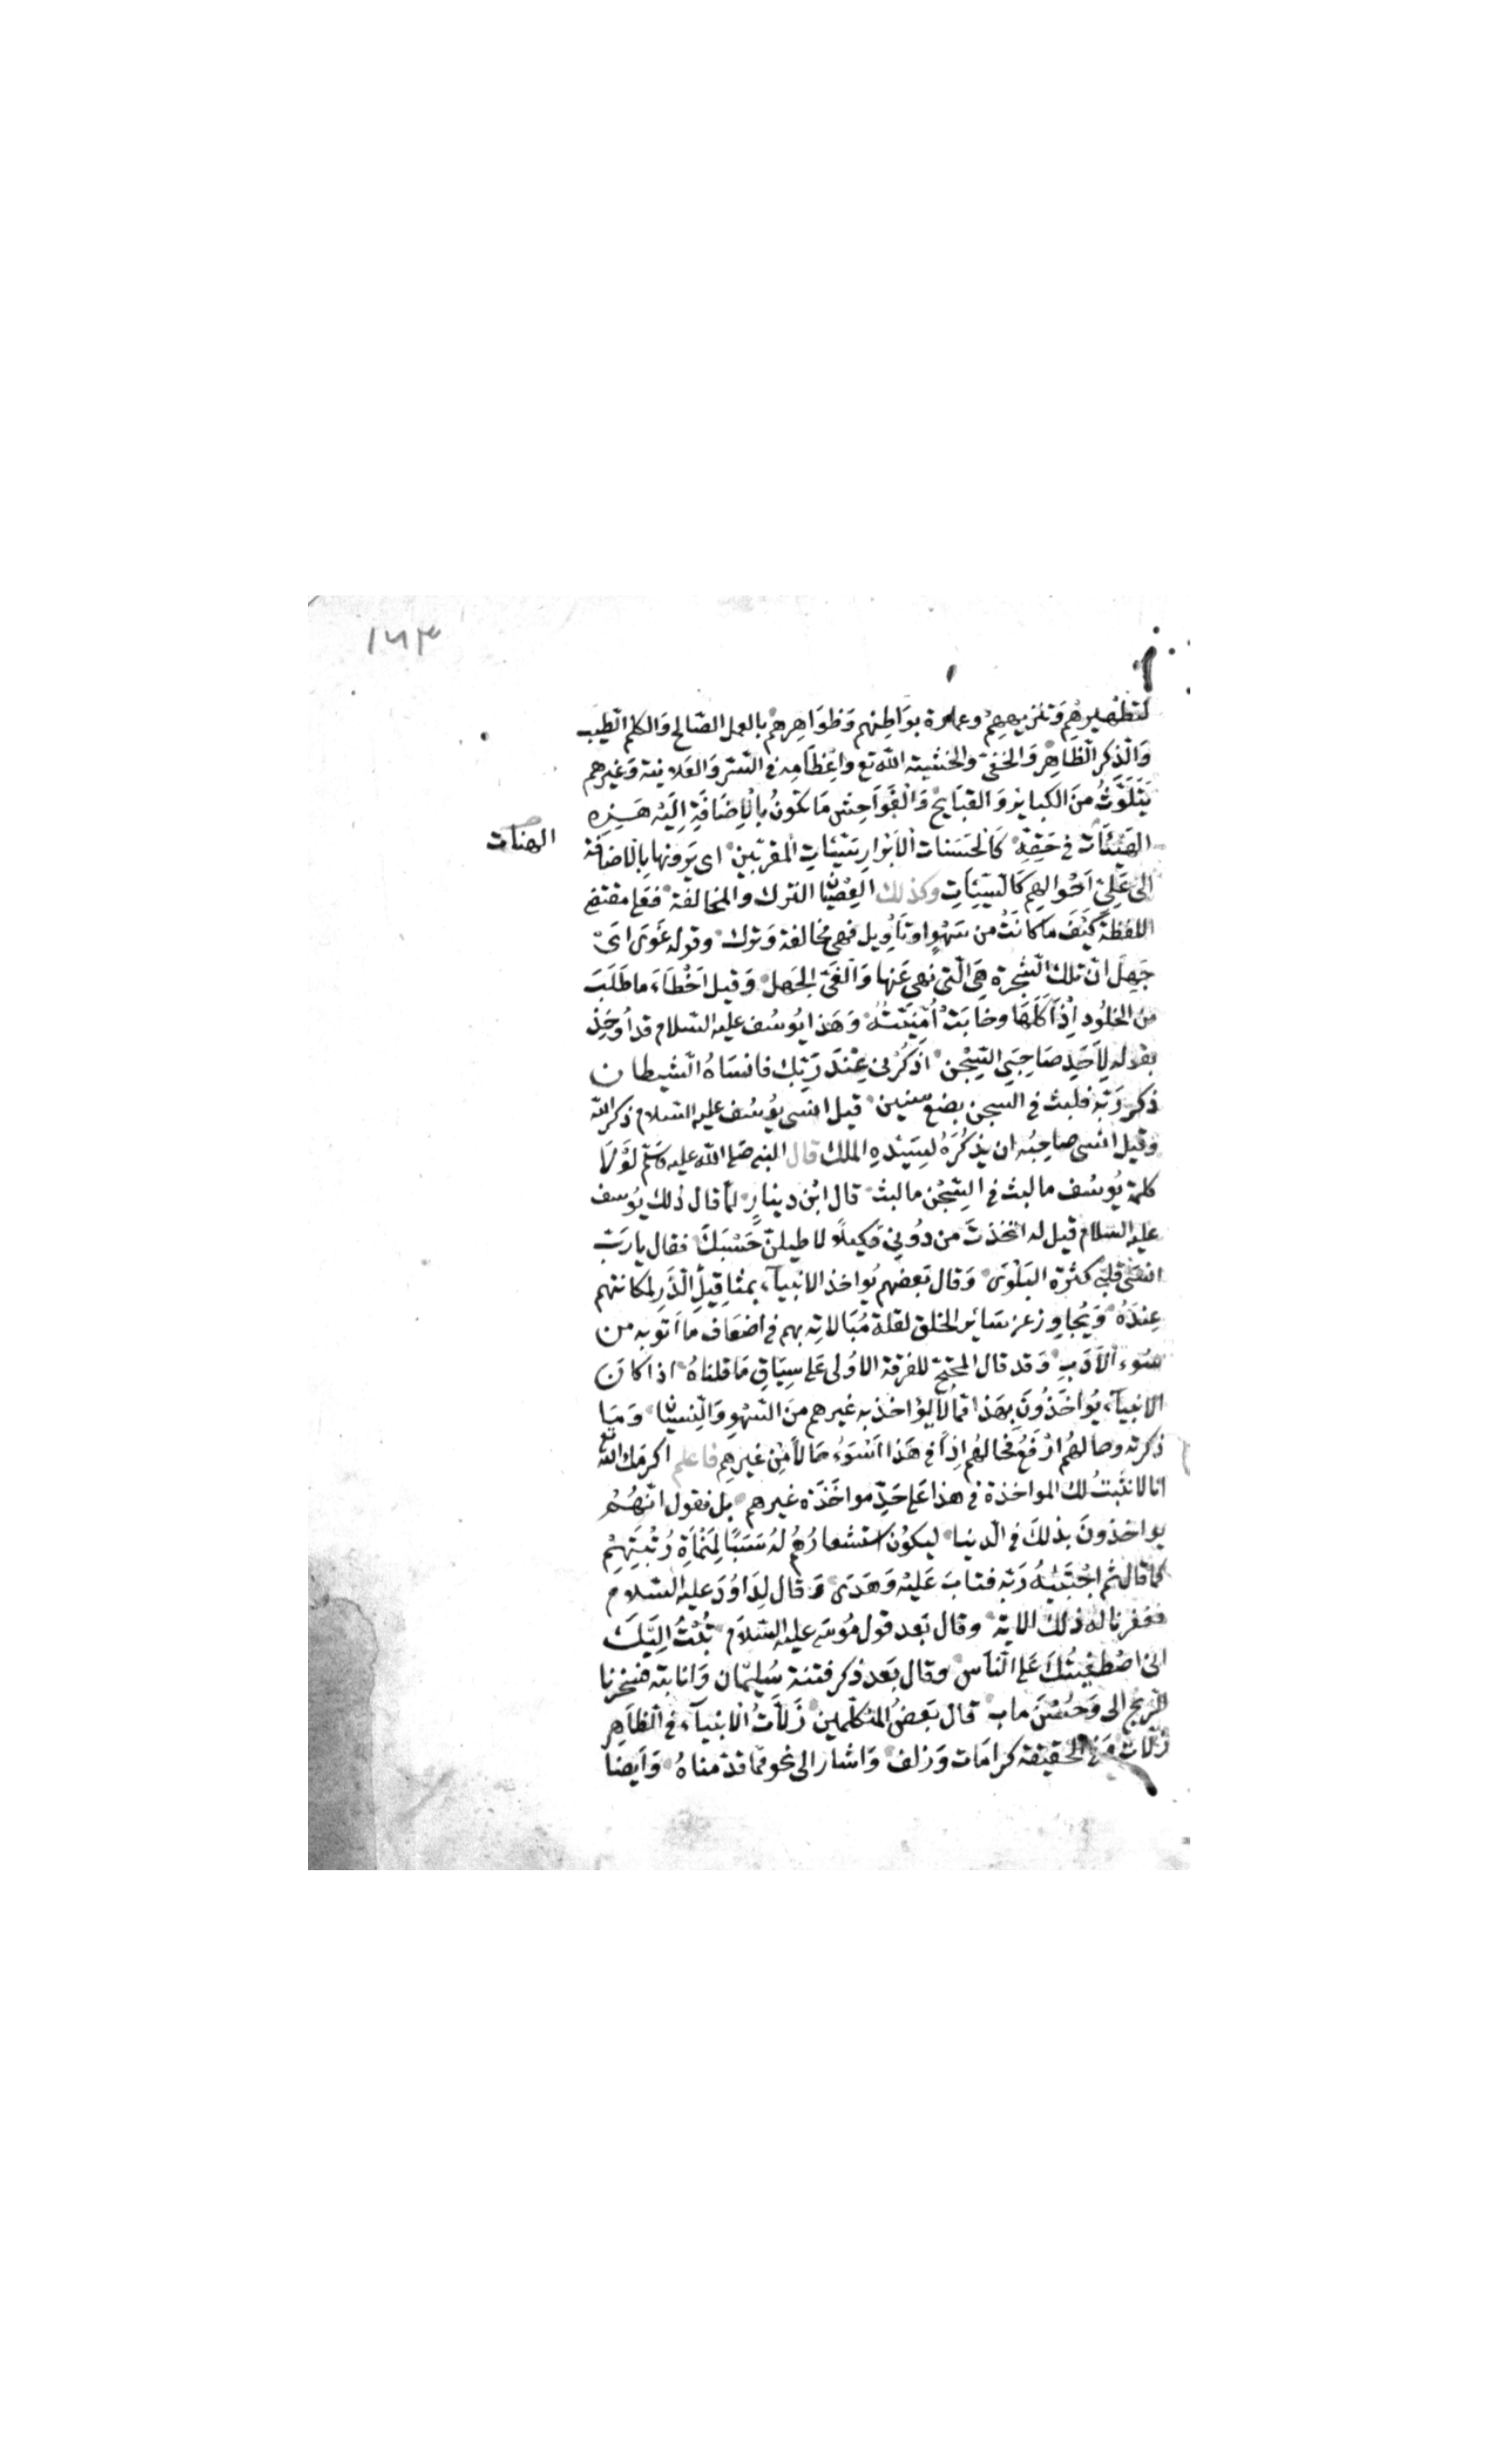 ١٦٣
لتطهيرهم وتنزيههم وعمارة بواطنهم وظواهرهم بالعمل الصالح والكلم الطيب
والذكر الظاهر والخفي والخشية الله تع واعظامه في السر والعلانية وغيرهم
يتلوث من الكبائر والقبايح والفواحش ما تكون بالاضافة اليه هذه
الهيئات في حقه كالحسنات الابرار سيئات المقربين اي يرونها بالاضافة
الهنات
الى علي احوالهم كالسيئات وكذلك العصيان الترك والمخالفة فعلى مقتضى
اللفظة كيف ما كانت من سهو او تأويل فهي مخالفة وترك وقوله غوى اي
جهل ان تلك الشجرة هي التي نهي عنها والغي الجهل وقيل اخطاء ما طلب
من الخلود اذ اكلها وخابت امنيته وهذا يوسف عليه السلام قد أوخذ
بقوله لاحد صاحبي السجن اذكرني عند ربك فانساه الشيطان
ذكر ربه فلبث في السجن بضع سنين قيل انسي يوسف عليه السلام ذكر الله
وقيل انسي صاحبه ان يذكره لسيده الملك قال النبي صلى الله عليه وسلم لولا
كلمة يوسف ما لبث في السجن ما لبث قال ابن دينار لما قال ذلك يوسف
عليه السلام قيل له اتخذت من دوني وكيلا لاطيلن حبسك فقال يارب
انسى قلبي كثرة البلوى وقال بعضهم يواخذ الانبياء بمثاقيل الذر لمكانتهم
عنده ويجاوز عن سائر الخلق لقلة مبالاته بهم في اضعاف ما اتو به من
سوء الادب وقد قال المحتج للفرقة الاولى على سياق ما قلناه اذا كان
الانبياء يواخذون بهذا مما لا يؤاخذ به غيرهم من السهو والنسيان وما
ذكرته وحالهم ارفع فحالهم اذا في هذا اسوء حالا من غيرهم فاعلم اكرمك الله
انا لا نثبت لك المواخذة في هذا على حد مواخذة غيرهم بل فقول انهم
يواخذون بذلك في الدنيا ليكون استشعارهم له سببا لمنماة رتبتهم
كما قال ثم اجتبيه ربه فتاب عليه وهدى وقال لداود عليه السلام
فغفرنا له ذلك الاية وقال بعد قول موسى عليه السلام تبت اليك
اني اصطفيتك على الناس وقال بعد ذكر فتنة سليمان وانابته فسخرنا
الريح الى وحسن ماب قال بعض المتكلمين زلات الانبياء في الظاهر
زلات وفي الحقيقة كرامات وزلف واشار الى نحو مما قدمناه وايضا